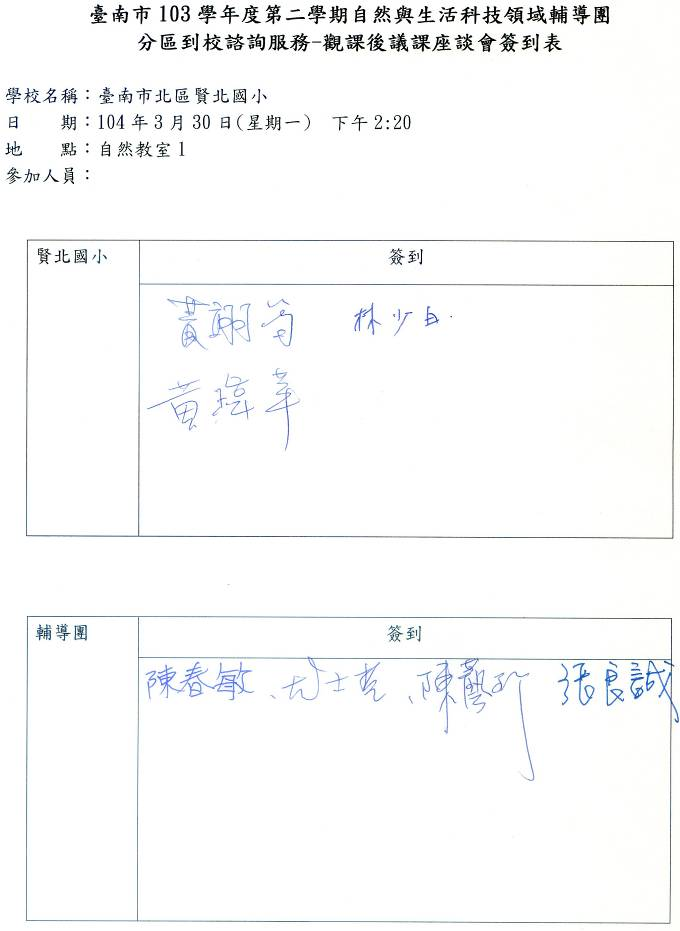 臺南市 103 學年度第二學期自然與生活科技領域輔導團
分區到校諮詢服務-觀課後議課座談會簽到表
學校名稱：臺南市北區賢北國小
日　　期：104 年 3 月 30 日(星期一)　下午 2:20
地　　點：自然教室 1
參加人員：
賢北國小 簽到
黃翊 林少
黃瑋華
輔導團 簽到
陳春敏、尤士哲、陳藝 張良誠